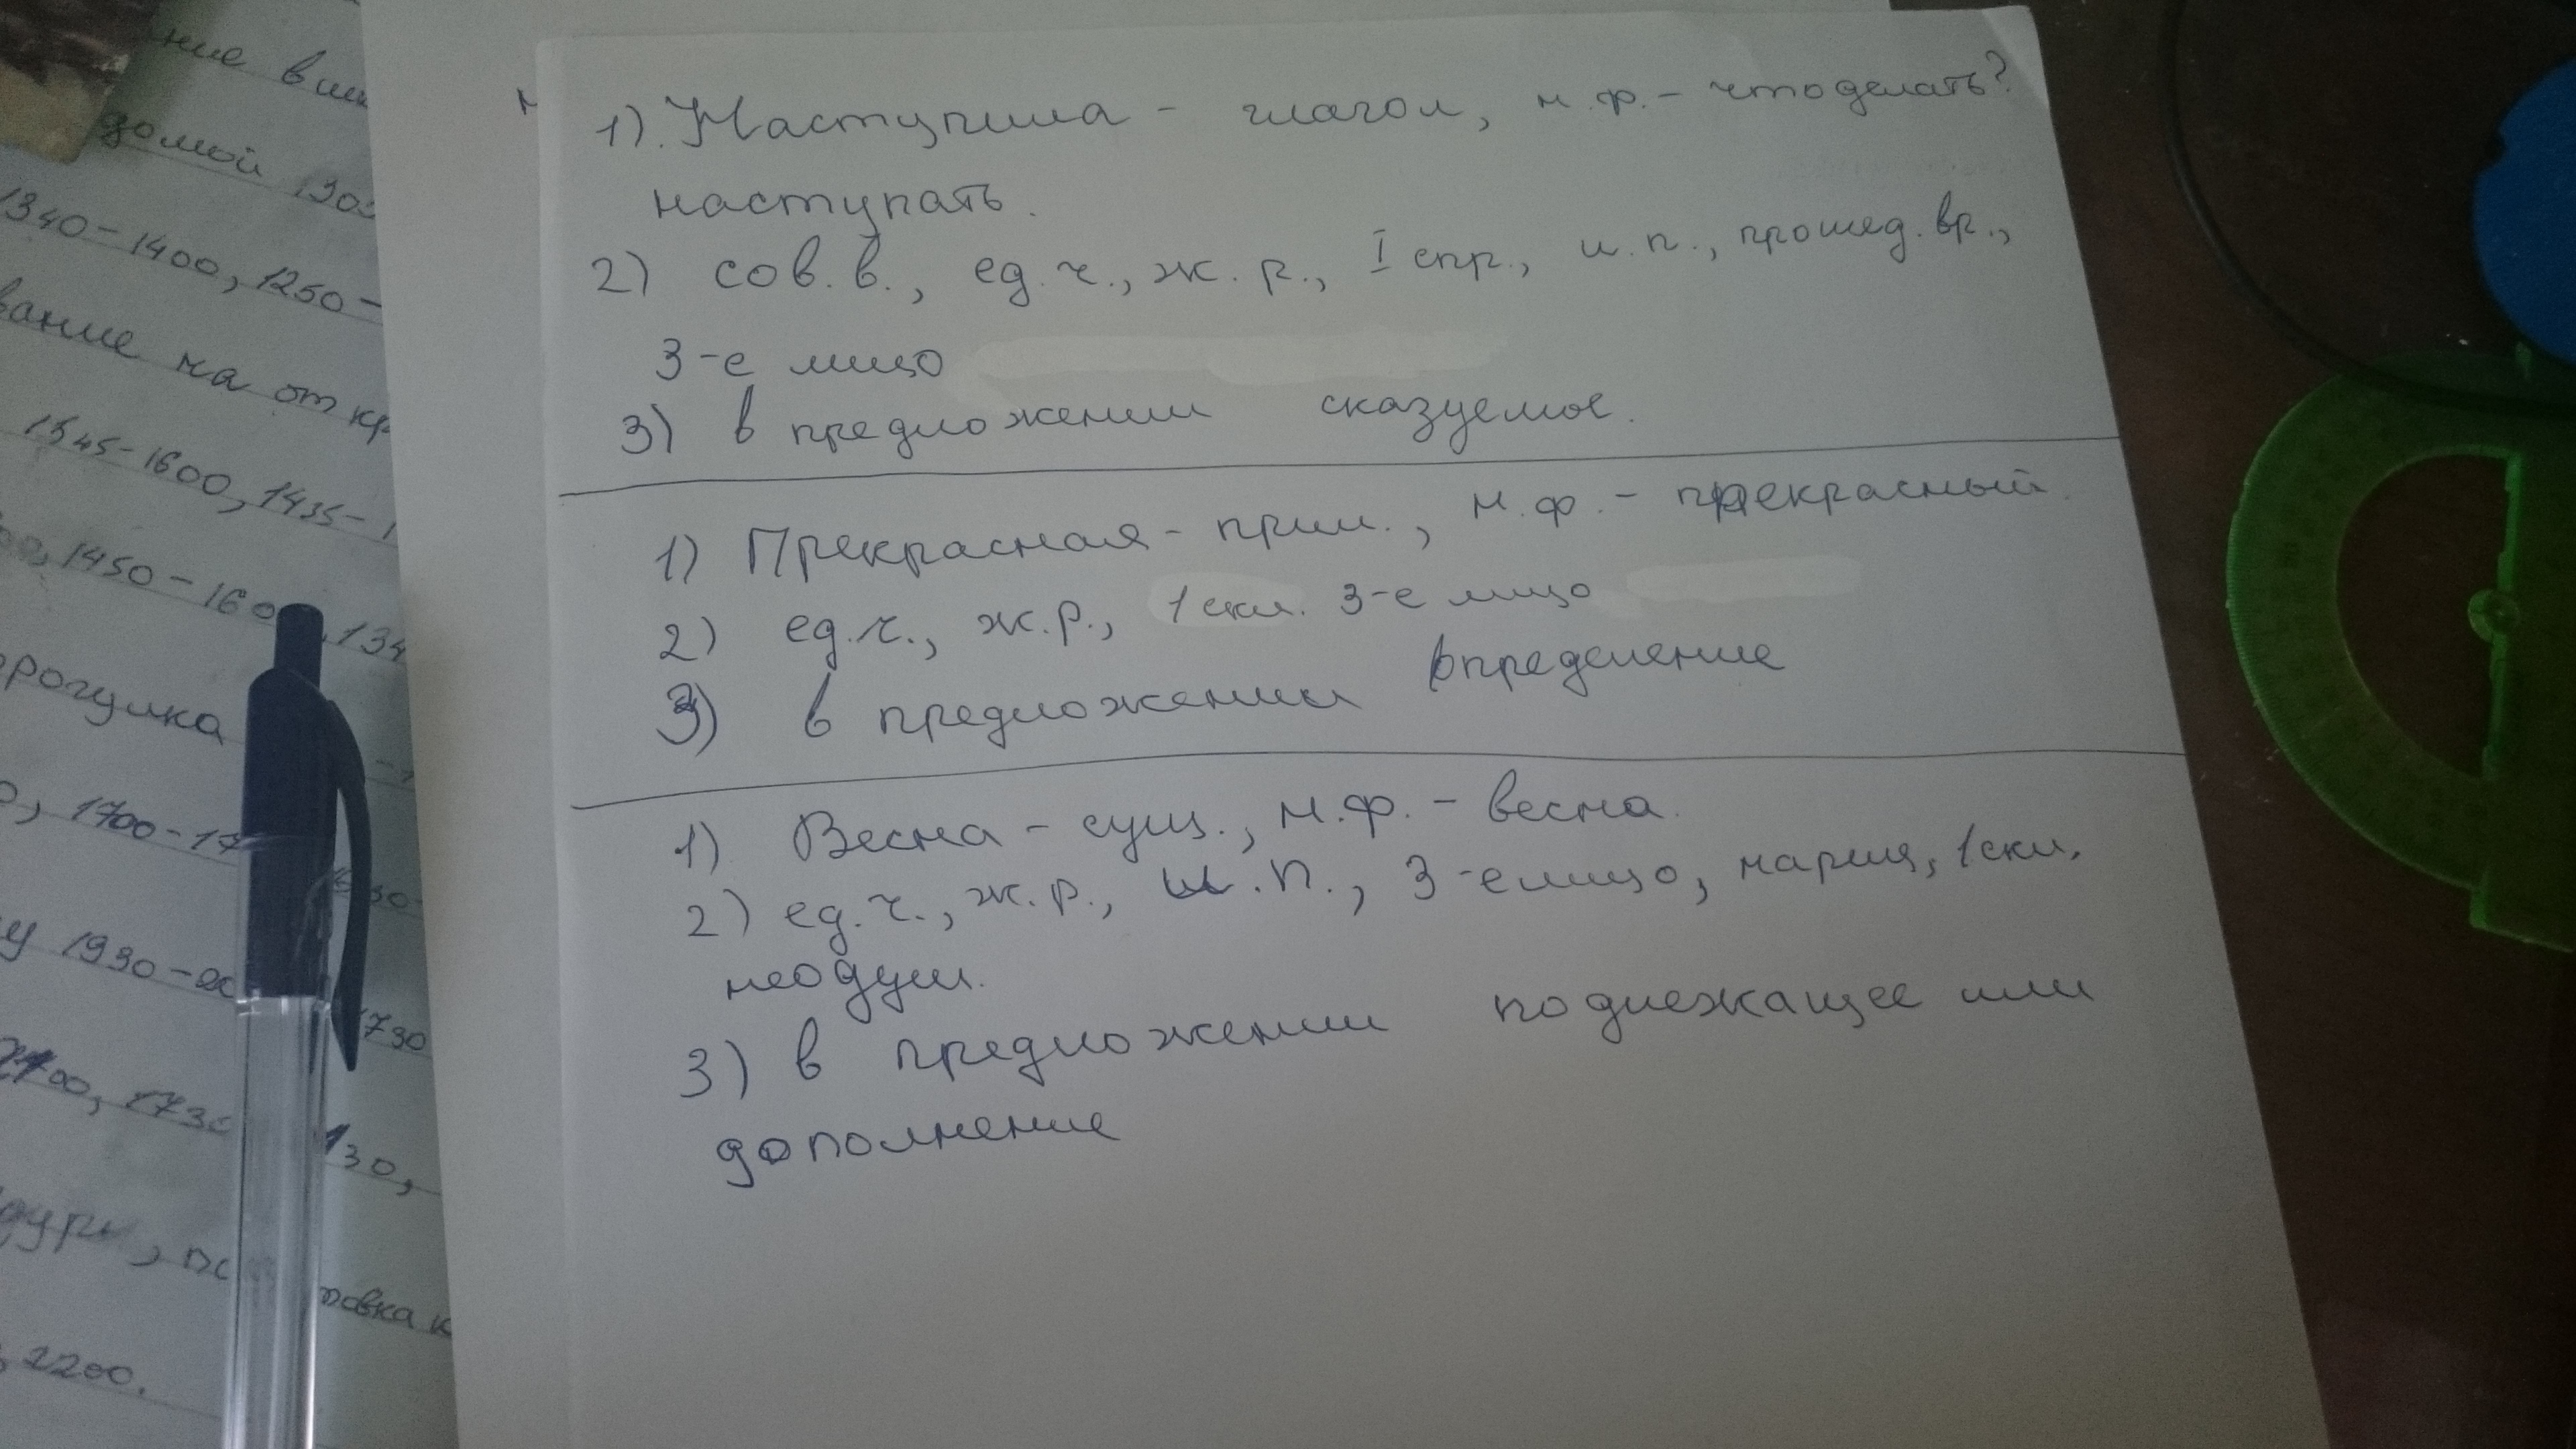 ние в шк
домой 1305
1340-1400, 1250-
вание на откр
1545-1600, 1435-1
1450-160 134
рогулка
1700-17
у 1930-20
1730
2100, 1730
130,
товка к
2200.
1). Наступила - глагол, н.ф.- что делать?
наступать.
2) сов. в., ед. ч., ж. р., I спр., и. п., прошед. вр.,
3-е лицо
3) в предложении сказуемое.
1) Прекрасная - прил., н.ф. - прекрасный.
2) ед.ч., ж.р., 1 скл. 3-е лицо
3) в предложении определение
1) Весна - сущ., н.ф. - весна.
2) ед.ч., ж.р., И.п., 3-е лицо, нариц, 1 скл,
неодуш.
3) в предложении подлежащее или
дополнение